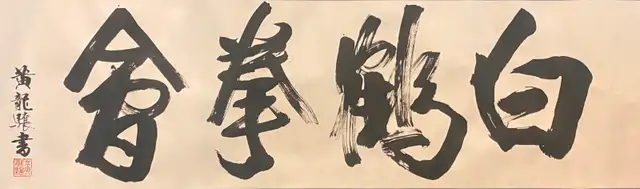 白鶴拳會
黃龍驤書